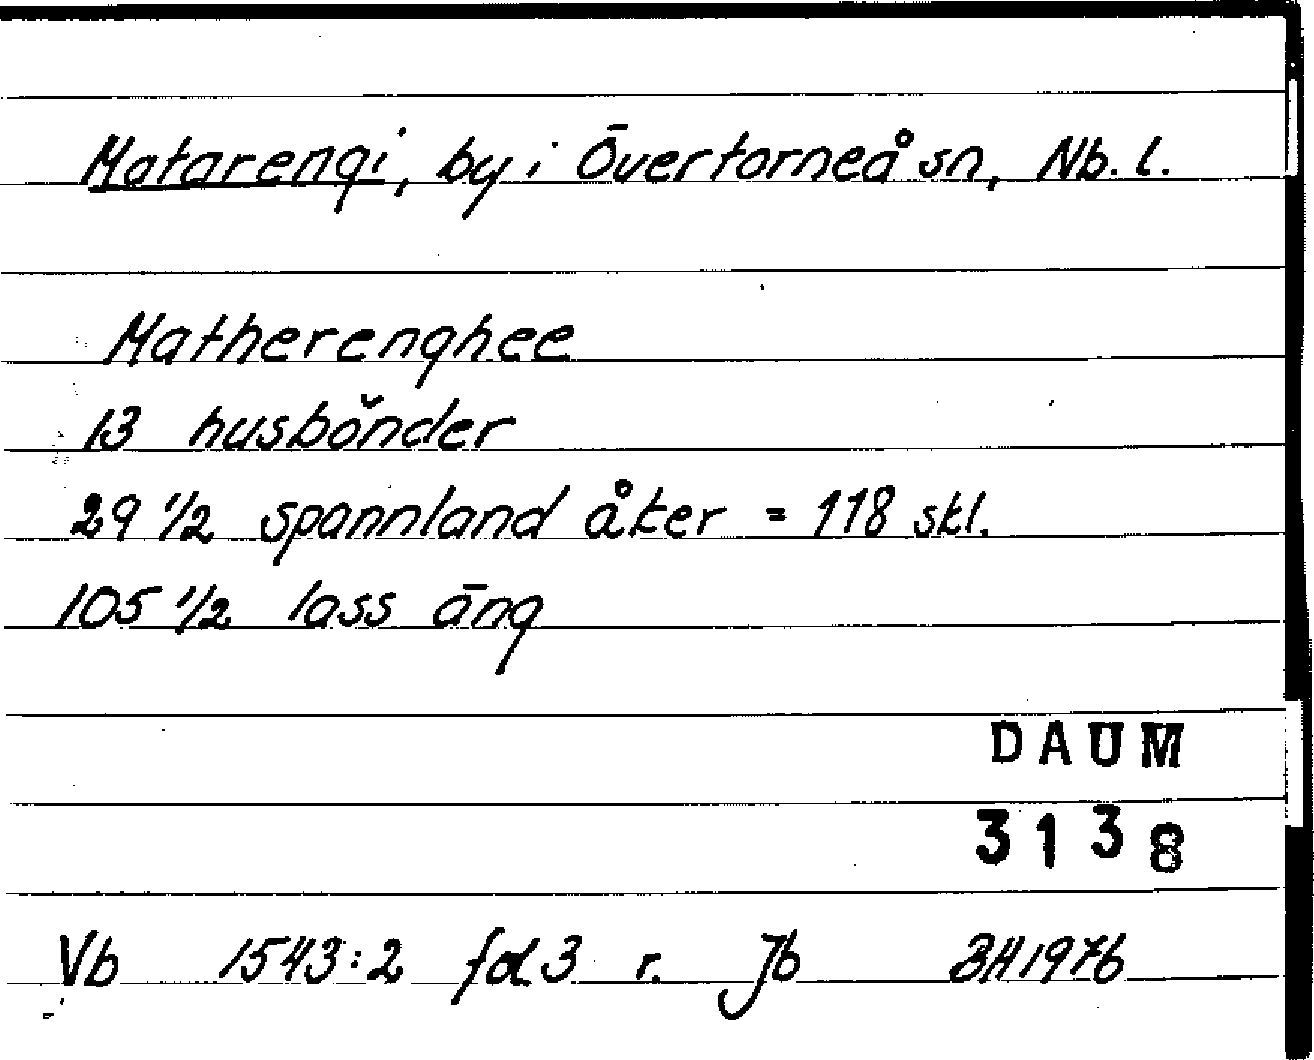 Matarengi, by i Övertorneå sn, Nb. l.
Matherenghee
13 husbönder
29 1/2 spannland åker = 118 skl.
105 1/2 lass äng
DAUM
3138
Vb 1543:2 fol 3 r. Jb BH 1976